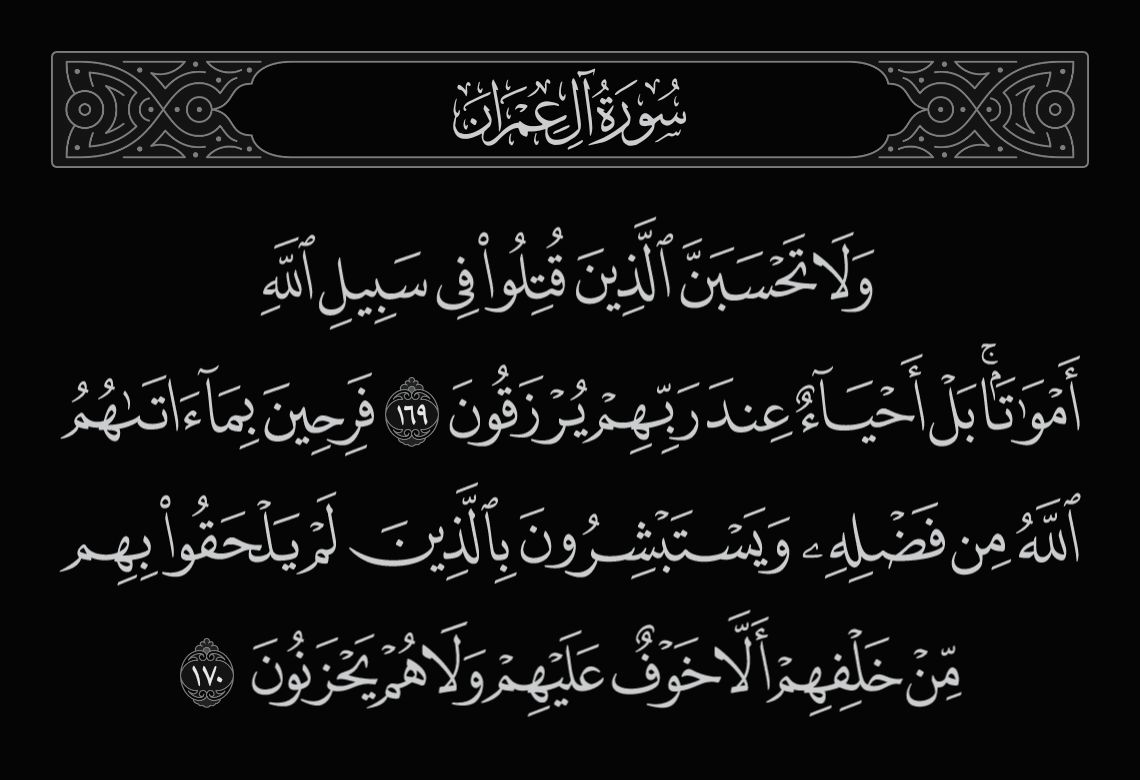 سُورَةُ آلِ عِمْرَانَ
وَلَا تَحْسَبَنَّ ٱلَّذِينَ قُتِلُوا۟ فِى سَبِيلِ ٱللَّهِ
أَمْوَٰتًۢا ۚ بَلْ أَحْيَآءٌ عِندَ رَبِّهِمْ يُرْزَقُونَ ١٦٩ فَرِحِينَ بِمَآ ءَاتَىٰهُمُ
ٱللَّهُ مِن فَضْلِهِۦ وَيَسْتَبْشِرُونَ بِٱلَّذِينَ لَمْ يَلْحَقُوا۟ بِهِم
مِّنْ خَلْفِهِمْ أَلَّا خَوْفٌ عَلَيْهِمْ وَلَا هُمْ يَحْزَنُونَ ١٧٠